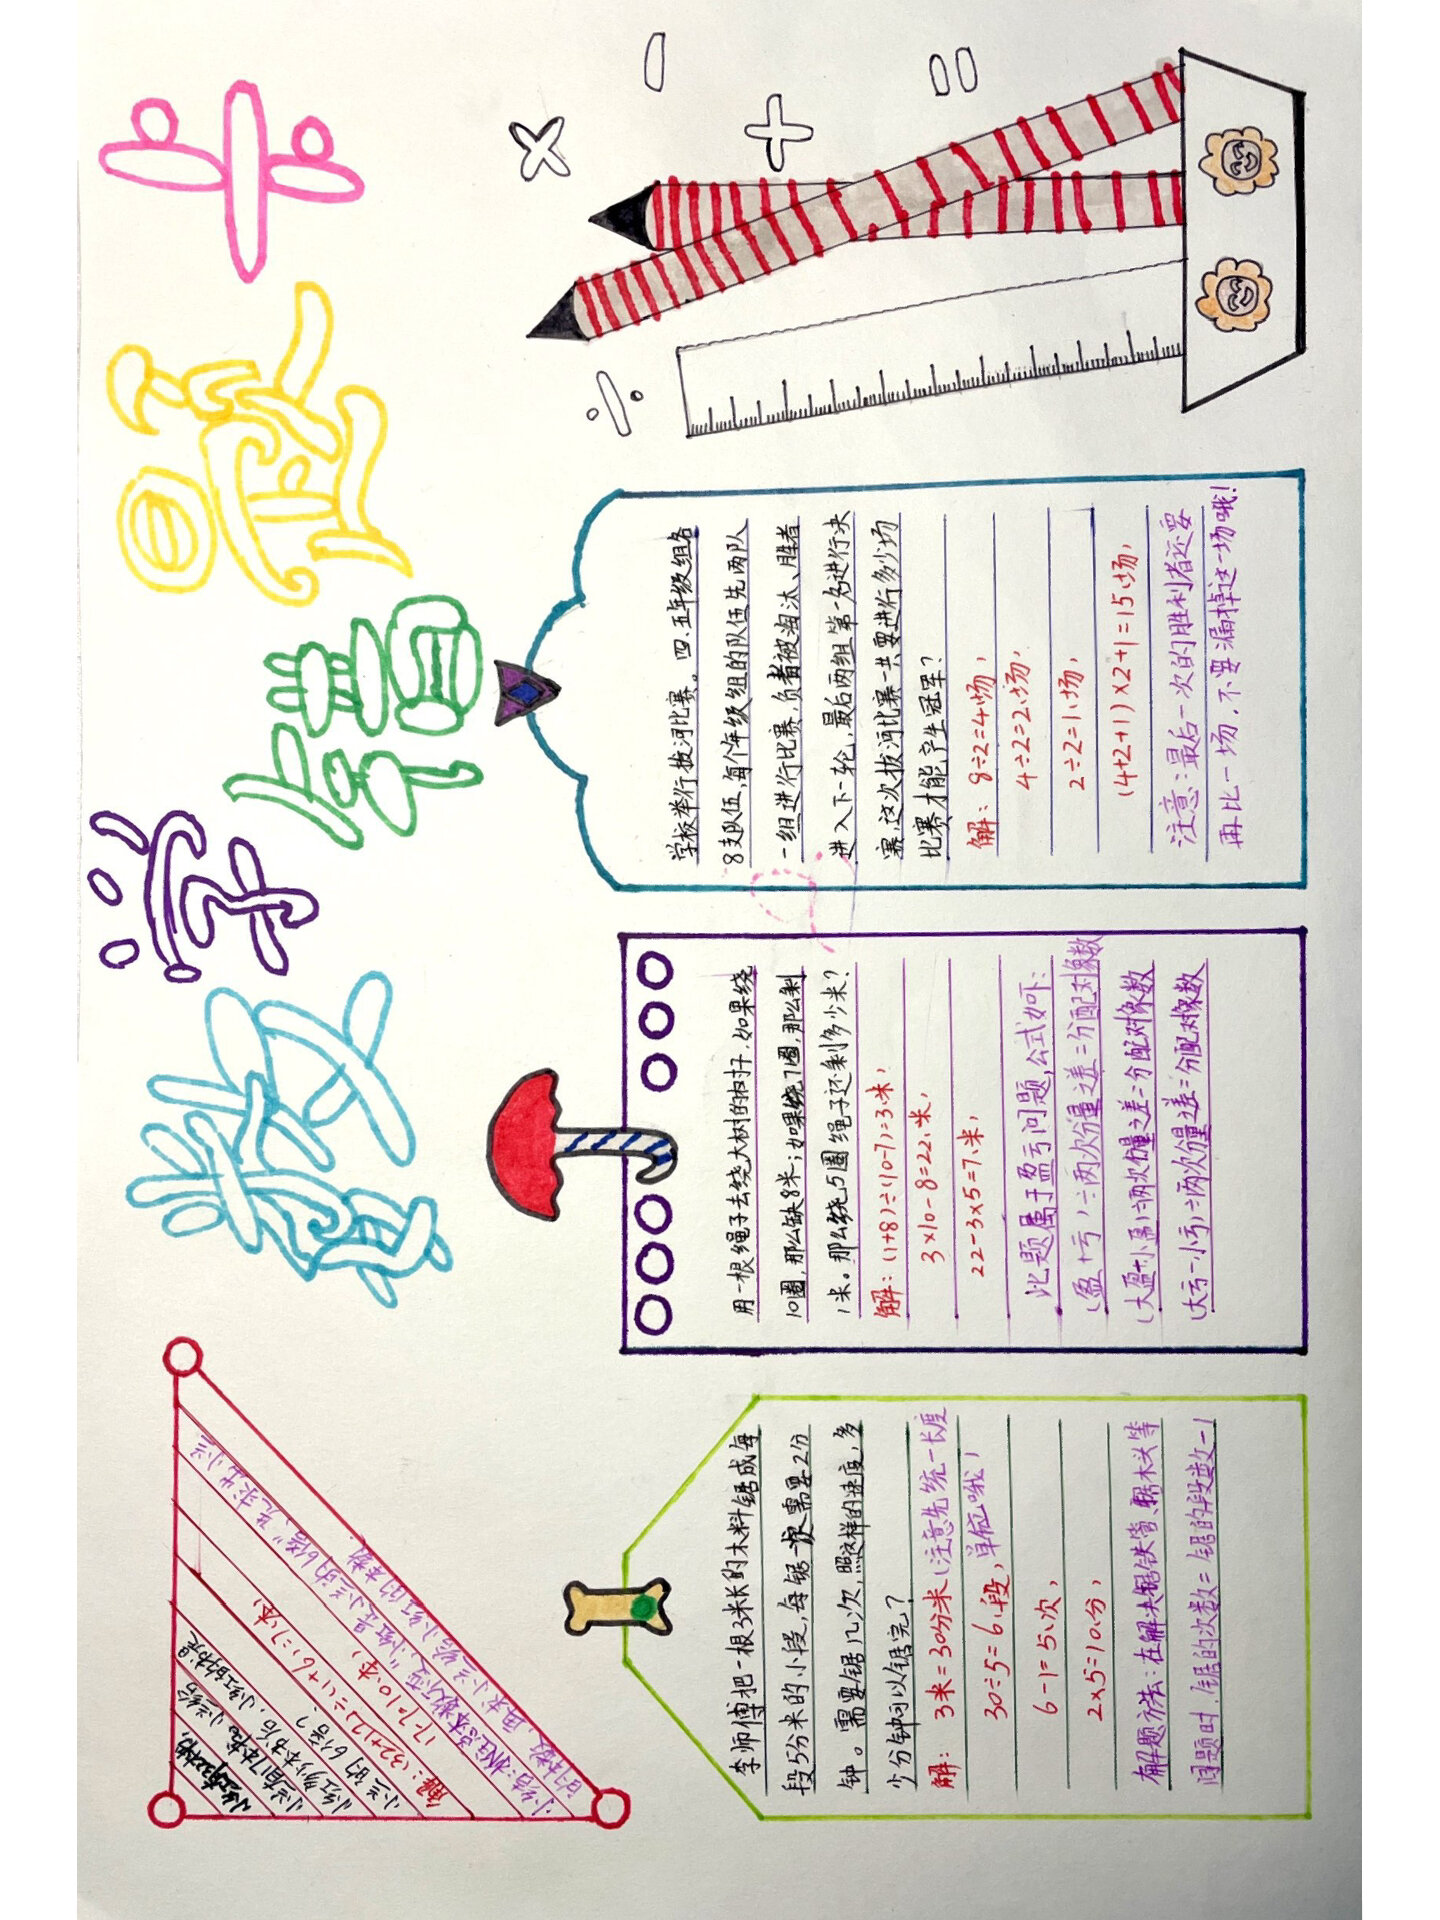 数学错题卡
小红有32本书,
小兰有17本书。小兰给
小红多少本书后,小红的书是
小兰的6倍?
解:(32+17)÷(1+6)=7(本)
17-7=10(本)
小结:抓住总本数不变,"小红是小兰的6倍",先求出小兰
的本数,再求小兰给小红的本数
李师傅把一根3米长的木料锯成每
段5分米的小段,每锯一次需要2分
钟。需要锯几次,照这样的速度,多
少分钟可以锯完?
解:3米=30分米(注意先统一长度
30÷5=6(段) 单位哦)
6-1=5(次)
2×5=10(分)
解题方法:在解决锯铁管、锯木头等
问题时,锯的次数=锯的段数-1
用一根绳子去绕大树的树干.如果绕
10圈,那么缺8米;如果绕7圈,那么剩
1米。那么绕5圈绳子还剩多少米?
解:(1+8)÷(10-7)=3(米)
3×10-8=22(米)
22-3×5=7(米)
此题属于盈亏问题,公式如下:
(盈+亏)÷两次分量之差=分配对象数
(大盈-小盈)÷两次分量之差=分配对象数
(大亏-小亏)÷两次分量之差=分配对象数
学校举行拔河比赛。四、五年级组各
8支队伍,每个年级组的队伍先两队
一组进行比赛,负者被淘汰、胜者
进入下一轮,最后两组第一名进行决
赛,这次拔河比赛一共要进行多少场
比赛才能产生冠军?
解:8÷2=4(场)
4÷2=2(场)
2÷2=1(场)
(4+2+1)×2+1=15(场)
注意:最后一次的胜利者还要
再比一场,不要漏掉这一场哦!
× - + = ÷